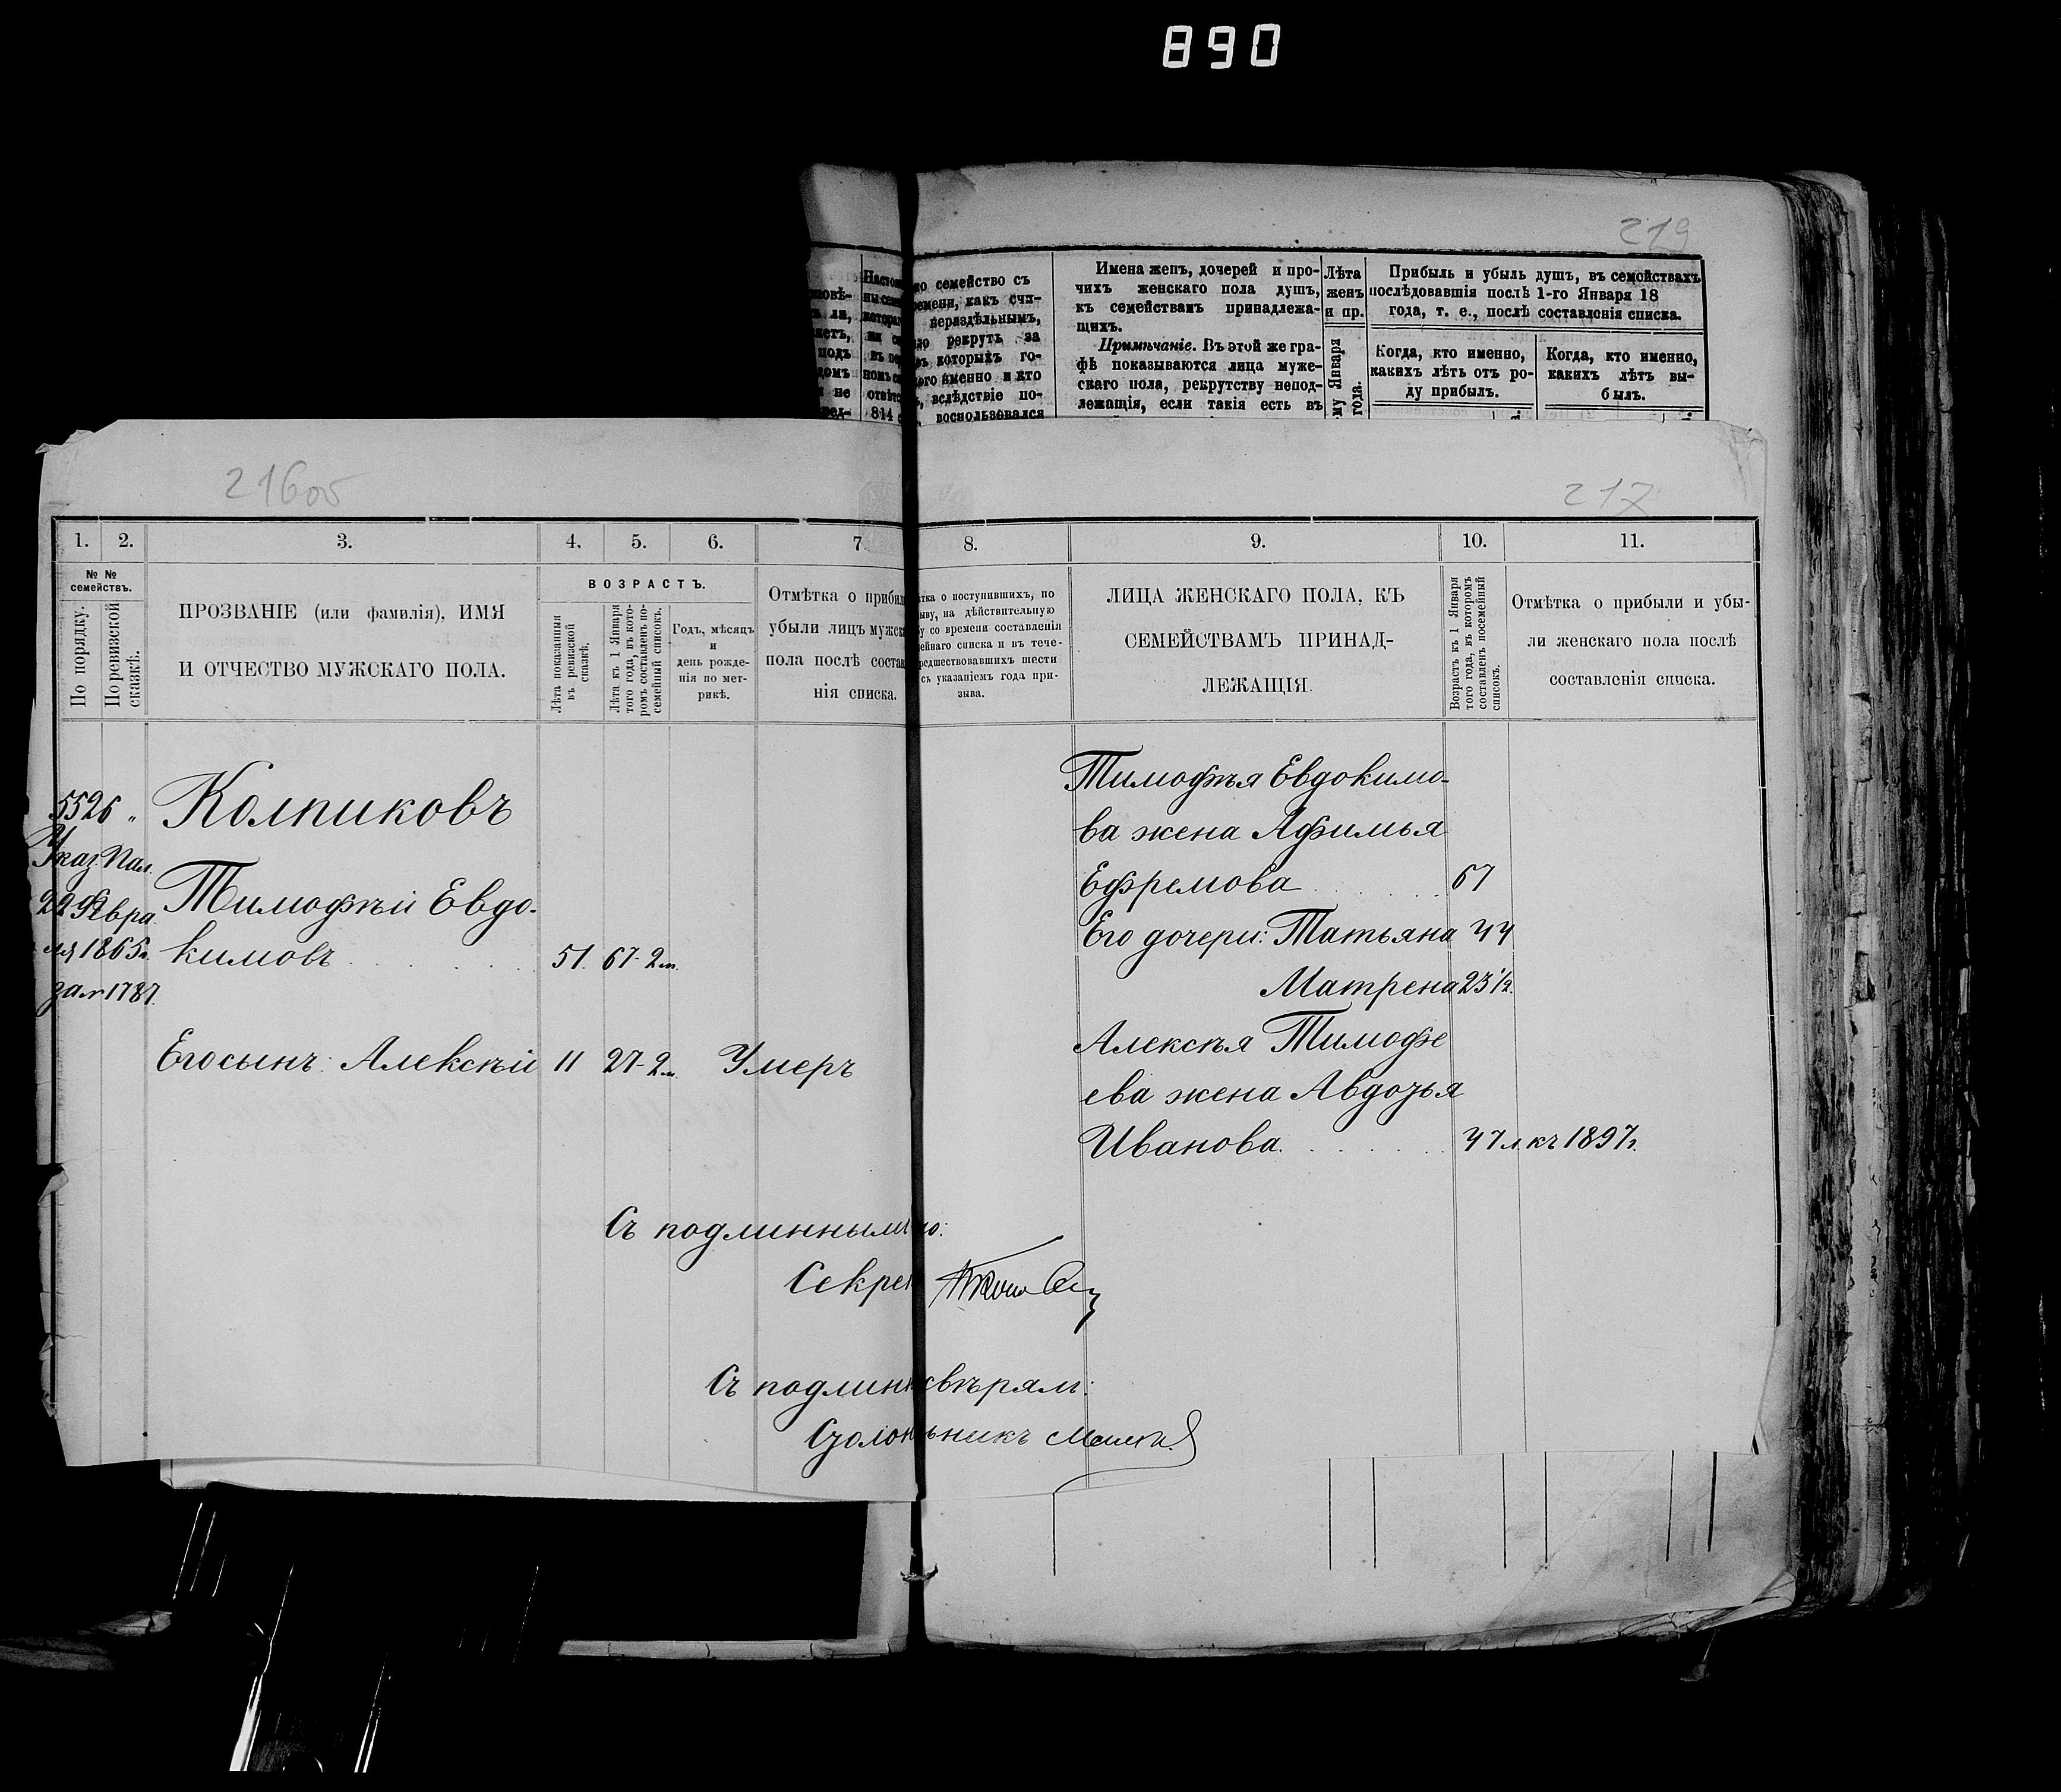 890
219
но семейство съ
ремени, какъ счи-
нераздѣльнымъ,
рекрутъ за
въ которыхъ го-
кого именно и кто
вслѣдствіе по-
воспользовался
Имена женъ, дочерей и про-
чихъ женскаго пола душъ,
къ семействамъ принадлежа-
щихъ.
Примѣчаніе. Въ этой же гра-
фѣ показываются лица муже-
скаго пола, рекрутству непод-
лежащія, если такія есть въ
Лѣта
женъ
и пр.
Января
года.
Прибыль и убыль душъ, въ семействахъ
послѣдовавшія послѣ 1-го Января 18
года, т. е., послѣ составленія списка.
Когда, кто именно,
какихъ лѣтъ отъ ро-
ду прибылъ.
Когда, кто именно,
какихъ лѣтъ вы-
былъ.
216об
217
1. 2. 3. 4. 5. 6. 7. 8. 9. 10. 11.
№ №
семействъ.
По порядку.
По ревизской
сказкѣ.
ПРОЗВАНІЕ (или фамилія), ИМЯ
И ОТЧЕСТВО МУЖСКАГО ПОЛА.
ВОЗРАСТЪ.
Лѣта показанныя
въ ревизской
сказкѣ.
Лѣта къ 1 Января
того года, въ кото-
ромъ составленъ по-
семейный списокъ.
Годъ, мѣсяцъ
и
день рожде-
нія по мет-
рикѣ.
Отмѣтка о прибыл
убыли лицъ мужск
пола послѣ состав
нія списка.
тка о поступившихъ, по
ыву, на дѣйствительную
у со времени составленія
ейнаго списка и въ тече-
редшествовавшихъ шести
съ указаніемъ года при-
зыва.
ЛИЦА ЖЕНСКАГО ПОЛА, КЪ
СЕМЕЙСТВАМЪ ПРИНАД-
ЛЕЖАЩІЯ.
Возрастъ къ 1 Января
того года, въ которомъ
составленъ посемейный
списокъ.
Отмѣтка о прибыли и убы-
ли женскаго пола послѣ
составленія списка.
5526 „ Колпиковъ
Указ. Пал.
22 Февра
ля 1865 г.
за № 1787.
Тимофѣй Евдо-
кимовъ 51. 67-2 м.
Его сынъ: Алексѣй 11 27-2 м. Умеръ
Тимофѣя Евдокимо-
ва жена Афимья
Ефремова 67
Его дочери: Татьяна 44
Матрена 23 1/2.
Алексѣя Тимофе
ева жена Авдотья
Иванова. 47 л. къ 1897 г.
Съ подлинным но:
Секрет
Съ подлин свѣрял:
Столон ьникъ